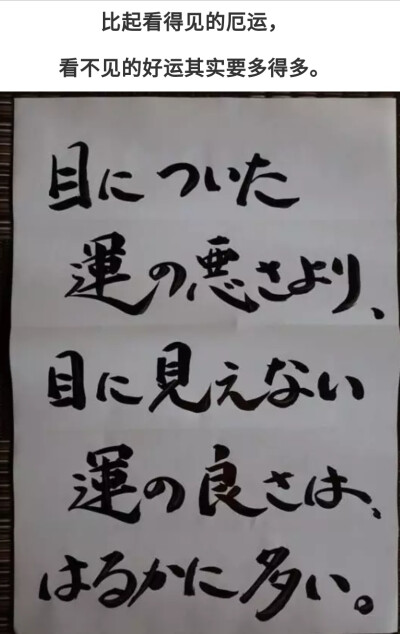 比起看得见的厄运，
看不见的好运其实要多得多。
目についた
運の悪さより、
目に見えない
運の良さは、
はるかに多い。